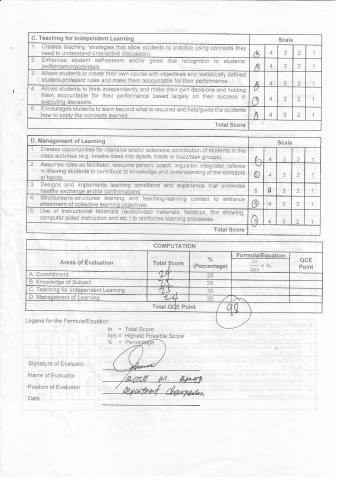 C. Teaching for Independent Learning Scale
1. Creates teaching strategies that allow students to practice using concepts they 5 4 3 2 1
need to understand (interactive discussion).
2. Enhances student self-esteem and/or gives due recognition to students' 5 4 3 2 1
performance/potentials.
3. Allows students to create their own course with objectives and realistically defined 4 3 2 1
student-professor rules and make them accountable for their performance.
4. Allows students to think independently and make their own decisions and holding 4 3 2 1
them accountable for their performance based largely on their success in
executing decisions.
5. Encourages students to learn beyond what is required and help/guide the students 4 3 2 1
how to apply the concepts learned.
Total Score
D. Management of Learning Scale
1. Creates opportunities for intensive and/or extensive contribution of students in the 4 3 2 1
class activities (e.g. breaks class into dyads, triads or buzz/task groups).
2. Assumes roles as facilitator, resource person, coach, inquisitor, integrator, referee 4 3 2 1
in drawing students to contribute to knowledge and understanding of the concepts
at hands.
3. Designs and implements learning conditions and experience that promotes 5 4 3 2 1
healthy exchange and/or confrontations.
4. Structures/re-structures learning and teaching-learning context to enhance 4 3 2 1
attainment of collective learning objectives.
5. Use of Instructional Materials (audio/video materials: fieldtrips, film showing, 4 3 2 1
computer aided instruction and etc.) to reinforces learning processes.
Total Score
COMPUTATION
Areas of Evaluation Total Score % (Percentage) Formula/Equation ts/hps x % QCE Point
A. Commitment 20
B. Knowledge of Subject 20
C. Teaching for Independent Learning 30
D. Management of Learning 24 30
Total QCE Point 98
Legend for the Formula/Equation:
ts = Total Score
hps = Highest Possible Score
% = Percentage
Signature of Evaluator
Name of Evaluator
Position of Evaluator Department Chairperson
Date